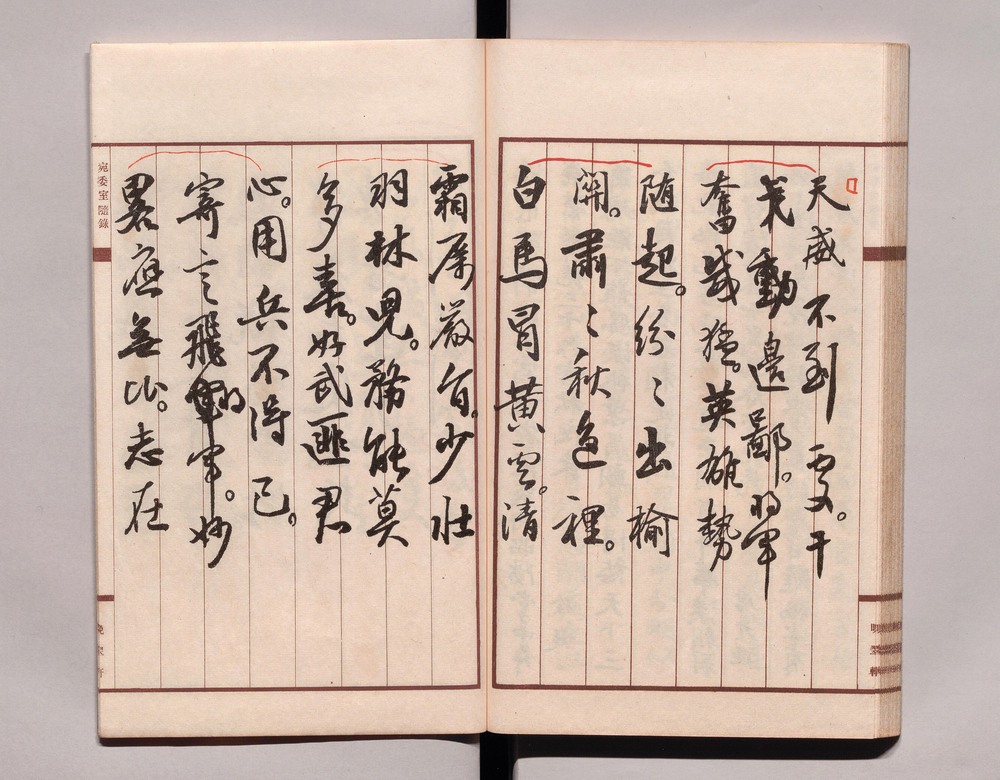 天威不到處。干
戈動邊鄙。将軍
奮武猛。英雄勢
随起。紛〻出榆
関。肅〻秋色裡。
白馬冒黄雲。清
霜厲嚴旨。少壯
羽林兒。務能莫
多喜。好武匪君
心。用兵不得已。
寄言飛将軍。妙
畧應無比。志在
宛委室隨錄